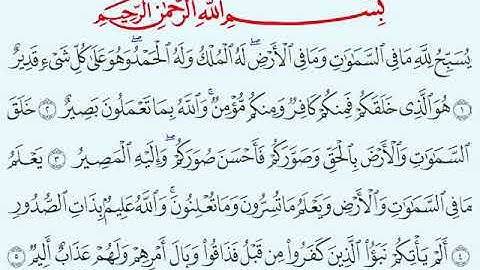 بِسْمِ اللَّهِ الرَّحْمَٰنِ الرَّحِيمِ
يُسَبِّحُ لِلَّهِ مَا فِي السَّمَٰوَٰتِ وَمَا فِي الْأَرْضِ ۖ لَهُ الْمُلْكُ وَلَهُ الْحَمْدُ ۖ وَهُوَ عَلَىٰ كُلِّ شَيْءٍ قَدِيرٌ
١ هُوَ الَّذِي خَلَقَكُمْ فَمِنكُمْ كَافِرٌ وَمِنكُم مُّؤْمِنٌ ۚ وَاللَّهُ بِمَا تَعْمَلُونَ بَصِيرٌ ٢ خَلَقَ
السَّمَٰوَٰتِ وَالْأَرْضَ بِالْحَقِّ وَصَوَّرَكُمْ فَأَحْسَنَ صُوَرَكُمْ ۖ وَإِلَيْهِ الْمَصِيرُ ٣ يَعْلَمُ
مَا فِي السَّمَٰوَٰتِ وَالْأَرْضِ وَيَعْلَمُ مَا تُسِرُّونَ وَمَا تُعْلِنُونَ ۚ وَاللَّهُ عَلِيمٌ بِذَاتِ الصُّدُورِ
٤ أَلَمْ يَأْتِكُمْ نَبَؤُا الَّذِينَ كَفَرُوا مِن قَبْلُ فَذَاقُوا وَبَالَ أَمْرِهِمْ وَلَهُمْ عَذَابٌ أَلِيمٌ ٥